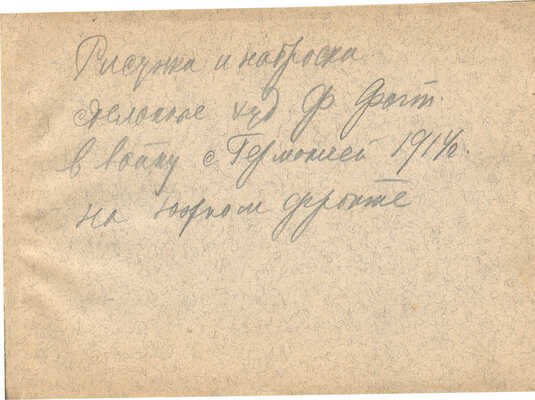 Рисунки и наброски
сделанные худ Ф Фогт.
в войну с Германией 1914г.
на южном фронте